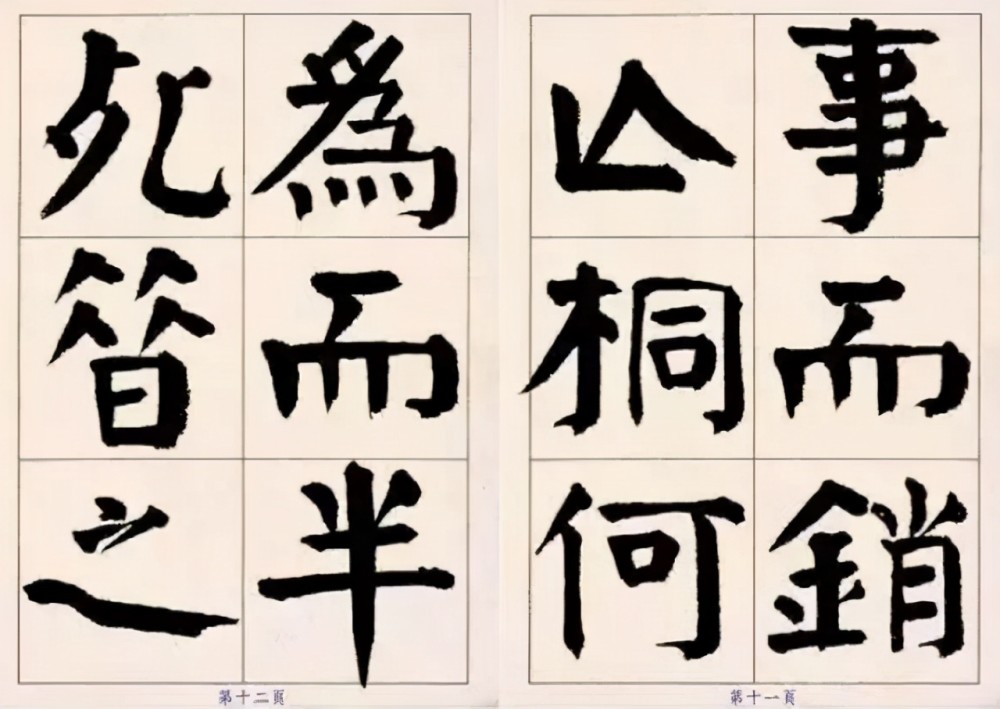 事而銷
亾桐何
第十一頁
爲而半
死㫺之
第十二頁